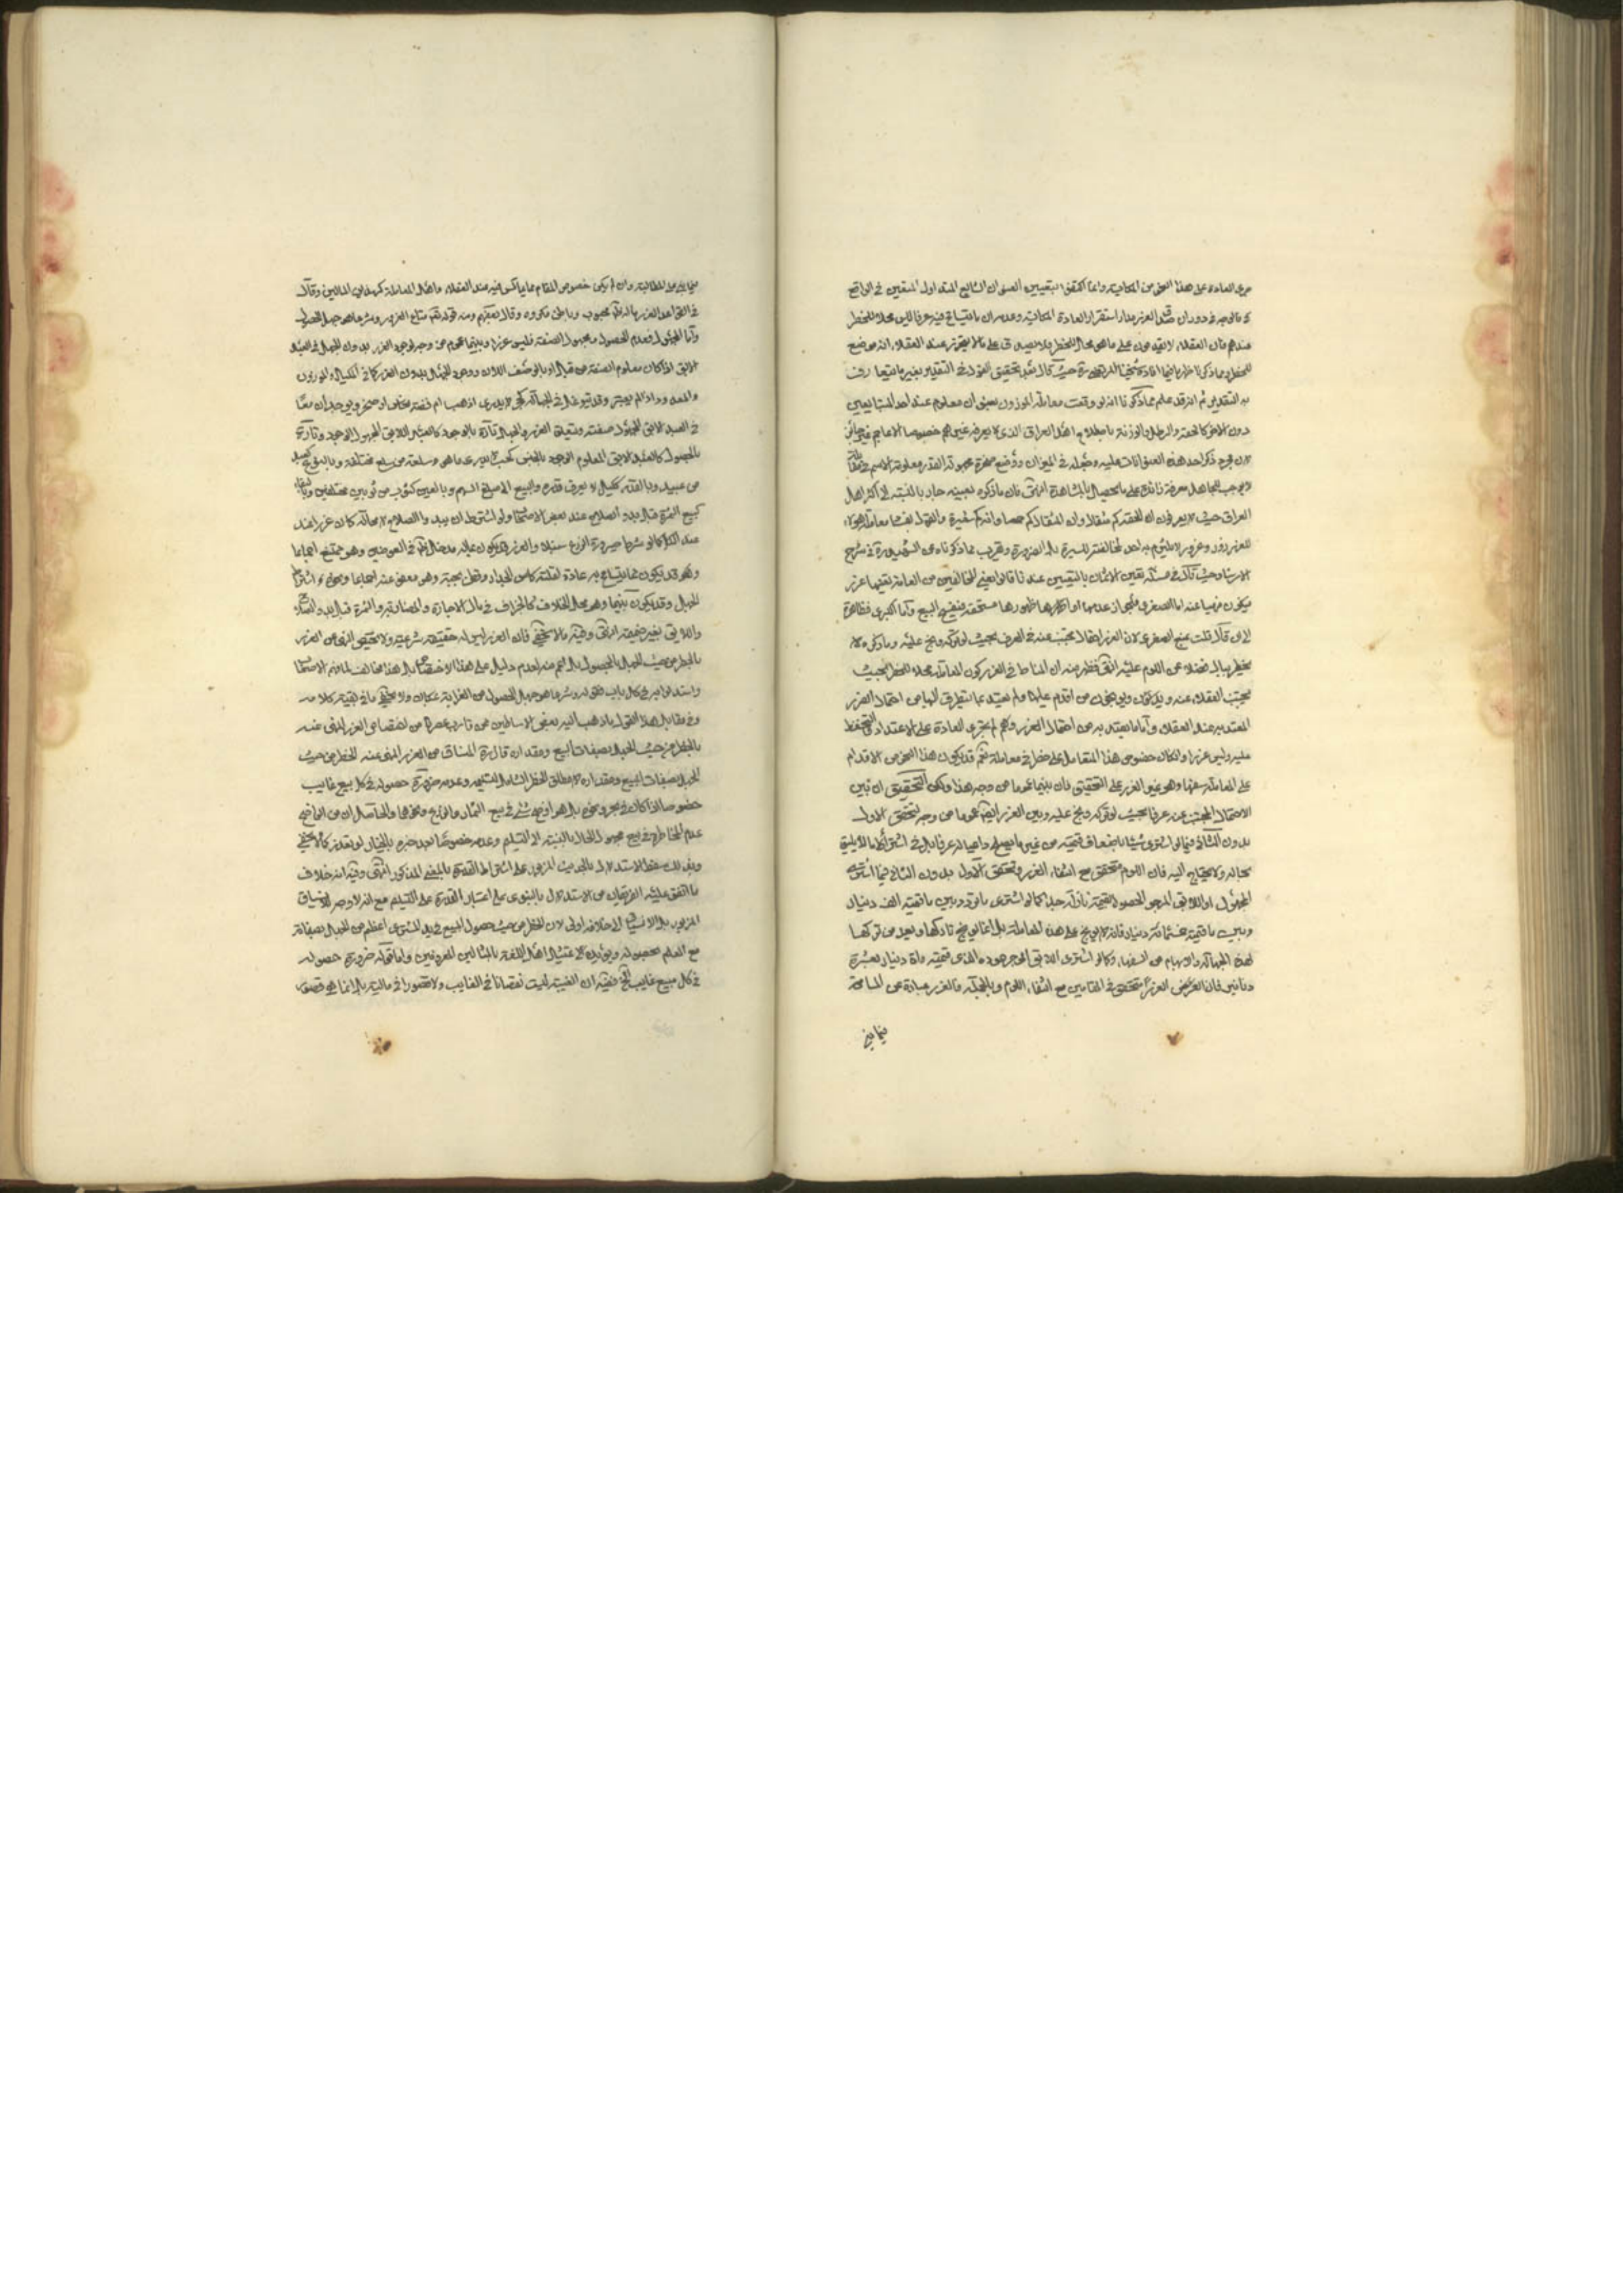 جرى العادة على هذا النحو من المكاتبة وانما اكتفوا بتعيين العنوان الشايع المتداول المتعين في الواقع
الغرر مدار استقرار العادة
عندهم فان العقلاء لا يقدمون على ما هو محل الخطر فلا يصدق على ما لا يتحرز عنه العقلاء انه موضع
الخطر حيث قال بعد تحقيق القول في التقدير بغير ما يتعارف
به التقدير ثم انه قد علم مما ذكرنا انه لو وقعت معاملة الموزون بعنوان معلوم عند احد المتبايعين
دون الاخر كالحقة والرطل والوزنة باصطلاح اهل العراق الذي لا يعرفه غيرهم خصوصا الاعاجم فهي غير جائز
لان مجرد ذكر احد هذه العنوانات عليه وجعله في الميزان ووضع صخرة مجهولة القدر معلومة الاسم في مقابلة
لا يوجب للجاهل معرفة زائدة على ما يحصل بالمشاهدة انتهى فان ما ذكره بعينه جار بالنسبة الى اكثر اهل
العراق حيث لا يعرفون ان الحقة كم مثقالا وان المثقال كم حمصا وانه كم شعيرة والقول بفساد معاملة هؤلاء
للغرر زور وغرور لا يلتزم به احد لمخالفته للسيرة بل الضرورة وقريب مما ذكرناه عن الشهيد ره في شرح
الارشاد حيث قال في مسئلة تعين الاثمان بالتعيين عندنا قالوا يعني المخالفين من العامة تعينها غرر
فيكون منهيا عنه اما الصغرى فلجواز عدمها او ظهورها مستحقة فينفسخ البيع واما الكبرى فظاهرة
الى ان قال قلت نمنع الصغرى لان الغرر احتمال مجتنب عنه في العرف بحيث لو تركه وبخ عليه وما ذكروه لا
يخطر ببال فضلا عن اللوم عليه انتهى فظهر منه ان المناط في الغرر كون المعاملة محلا للخطر بحيث
يجتنب العقلاء عنه ويوبخون من اقدم عليها ولم يعتد بما يتطرق اليها من احتمال الضرر
المعتد به عند العقلاء واما ما يعتد به من احتمال الضرر ولكن لم تجر العادة على الاعتداد
فليس غررا
على المعاملة سفها وهو غير الغرر على التحقيق فان بينهما عموما من وجه هذا ولكن التحقيق ان بين
الاحتمال المجتنب عنه عرفا بحيث لو تركه وبخ عليه وبين الغرر ايضا عموما من وجه لتحقق الاول
بدون الثاني فيما لو اشترى شيئا باضعاف قيمته من غير
يحتاج اليه فان اللوم متحقق مع انتفاء الغرر وتحقق الاول بدون الثاني فيما اشترى
المجهول او الابق المرجو الحصول بقيمة نازلة جدا كما لو اشترى ما تردد بين ما قيمته الف دينار
وبين ما قيمته خمسمائة دينار فانه لا يوبخ على هذه المعاملة بل انما يوبخ تاركها ويعد من تركها
لهذه الجهالة والابهام من السفهاء وكما لو اشترى الابق المرجو عوده الذي قيمته مائة دينار بعشرة
دنانير فان الغرر متحقق في المقامين مع انتفاء اللوم وبالجملة فالغرر عبارة عن المسامحة
فيما ينبغي
فيما ينبغي المطالبة وان لم يكن خصوص المقام مما يماكس فيه عند العقلاء واهل المعاملة كهذين المثالين وقال
في القواعد الغرر ما له ظاهر محبوب وباطن مكروه وقال بعضهم ومنه قوله تعالى متاع الغرور وشرعا هو جهل الحصول
واما المجهول فمعلوم الحصول مجهول الصفة فليس غررا وبينهما عموم من وجه لوجود الغرر بدون الجهل في العبد
الابق اذا كان معلوم الصفة من قبل او بالوصف الان ووجود الجهل بدون الغرر كما في المكيل والموزون
والمعدود اذا لم يعتبر وقد يتوغل في الجهالة كحجر لا يدرى اذهب ام فضة ام نحاس او صخر ويوجدان معا
في العبد الابق المجهول صفته ويتعلق الغرر والجهل تارة بالوجود كالعبد الابق المجهول الوجود وتارة
بالحصول كالعبد الابق المعلوم الوجود وبالجنس كحب لا يدرى ما هو وسلعة من سلع مختلفة وبالنوع كعبد
من عبيد وبالقدر ككيل لا يعرف قدره والبيع الى مبلغ السهم وبالعين كثوب من ثوبين مختلفين وبالبقاء
كبيع الثمرة قبل بدو الصلاح عند بعض الاصحاب ولو اشترط ان يبدو الصلاح لا محالة كان غررا عند
عند الكل كما لو شرط صيرورة الزرع سنبلا والغرر قد يكون بما له مدخل ظاهر في العوضين وهو ممتنع اجماعا
وقد يكون مما يتسامح به عادة لقلته كاس الجدار وقطن الجبة وهو معفو عنه اجماعا ونحوه اشتراط
الحمل وقد يكون بينهما وهو محل الخلاف كالجزاف في مال الاجارة والمضاربة والثمرة قبل بدو الصلاح
والابق بغير ضميمة انتهى وفيه ما لا يخفى فان الغرر ليس له حقيقة شرعية ولا يختص النهي عن الغرر
بالخطر من حيث الجهل بالحصول بل اعم منه لعدم دليل على هذا الاختصاص بل هذا مخالف لما فهم الاصحاب
واستدلوا به في كل باب فقوله وشرعا هو جهل الحصول من الغرابة بمكان ولا يخفى ما في بقية كلامه
وفي مقابل هذا القول ما ذهب اليه بعض الاساطين ممن قارب عصرنا من اختصاص الغرر المنفي عنه
بالخطر من حيث الجهل بصفات المبيع ومقداره قال ره المنساق من الغرر المنهي عنه الخطر من حيث
الجهل بصفات المبيع ومقداره لا مطلق الخطر الشامل لتسليمه وعدمه ضرورة حصوله في كل بيع غايب
خصوصا اذا كان في بحر ونحوه بل هو اوضح شيء في بيع الثمار والزرع ونحوهما والحاصل ان من الواضح
عدم المخاطرة في بيع مجهول الحال بالنسبة الى التسليم وعدمه خصوصا بعد جبره بالخيار لو تعذر كما لا يخفى
وبذلك سقط الاستدلال بالحديث المزبور على اشتراط القدرة بالمعنى المذكور انتهى وفيه انه خلاف
ما اتفق عليه الفريقان من الاستدلال بالنبوي على اعتبار القدرة على التسليم مع انه لا وجه للانسياق
المزبور بل الانسياق الى خلافه اولى لان الخطر من حيث حصول المبيع في يد المشتري اعظم من الجهل بصفاته
مع العلم بحصوله ويؤيده تمثيل اهل اللغة بالمثالين المعروفين واما قوله ضرورة حصوله
في كل مبيع غايب الخ ففيه ان الغيبة ليست نقصانا في الغايب ولا قصورا في ماليته بل انما هي قصور